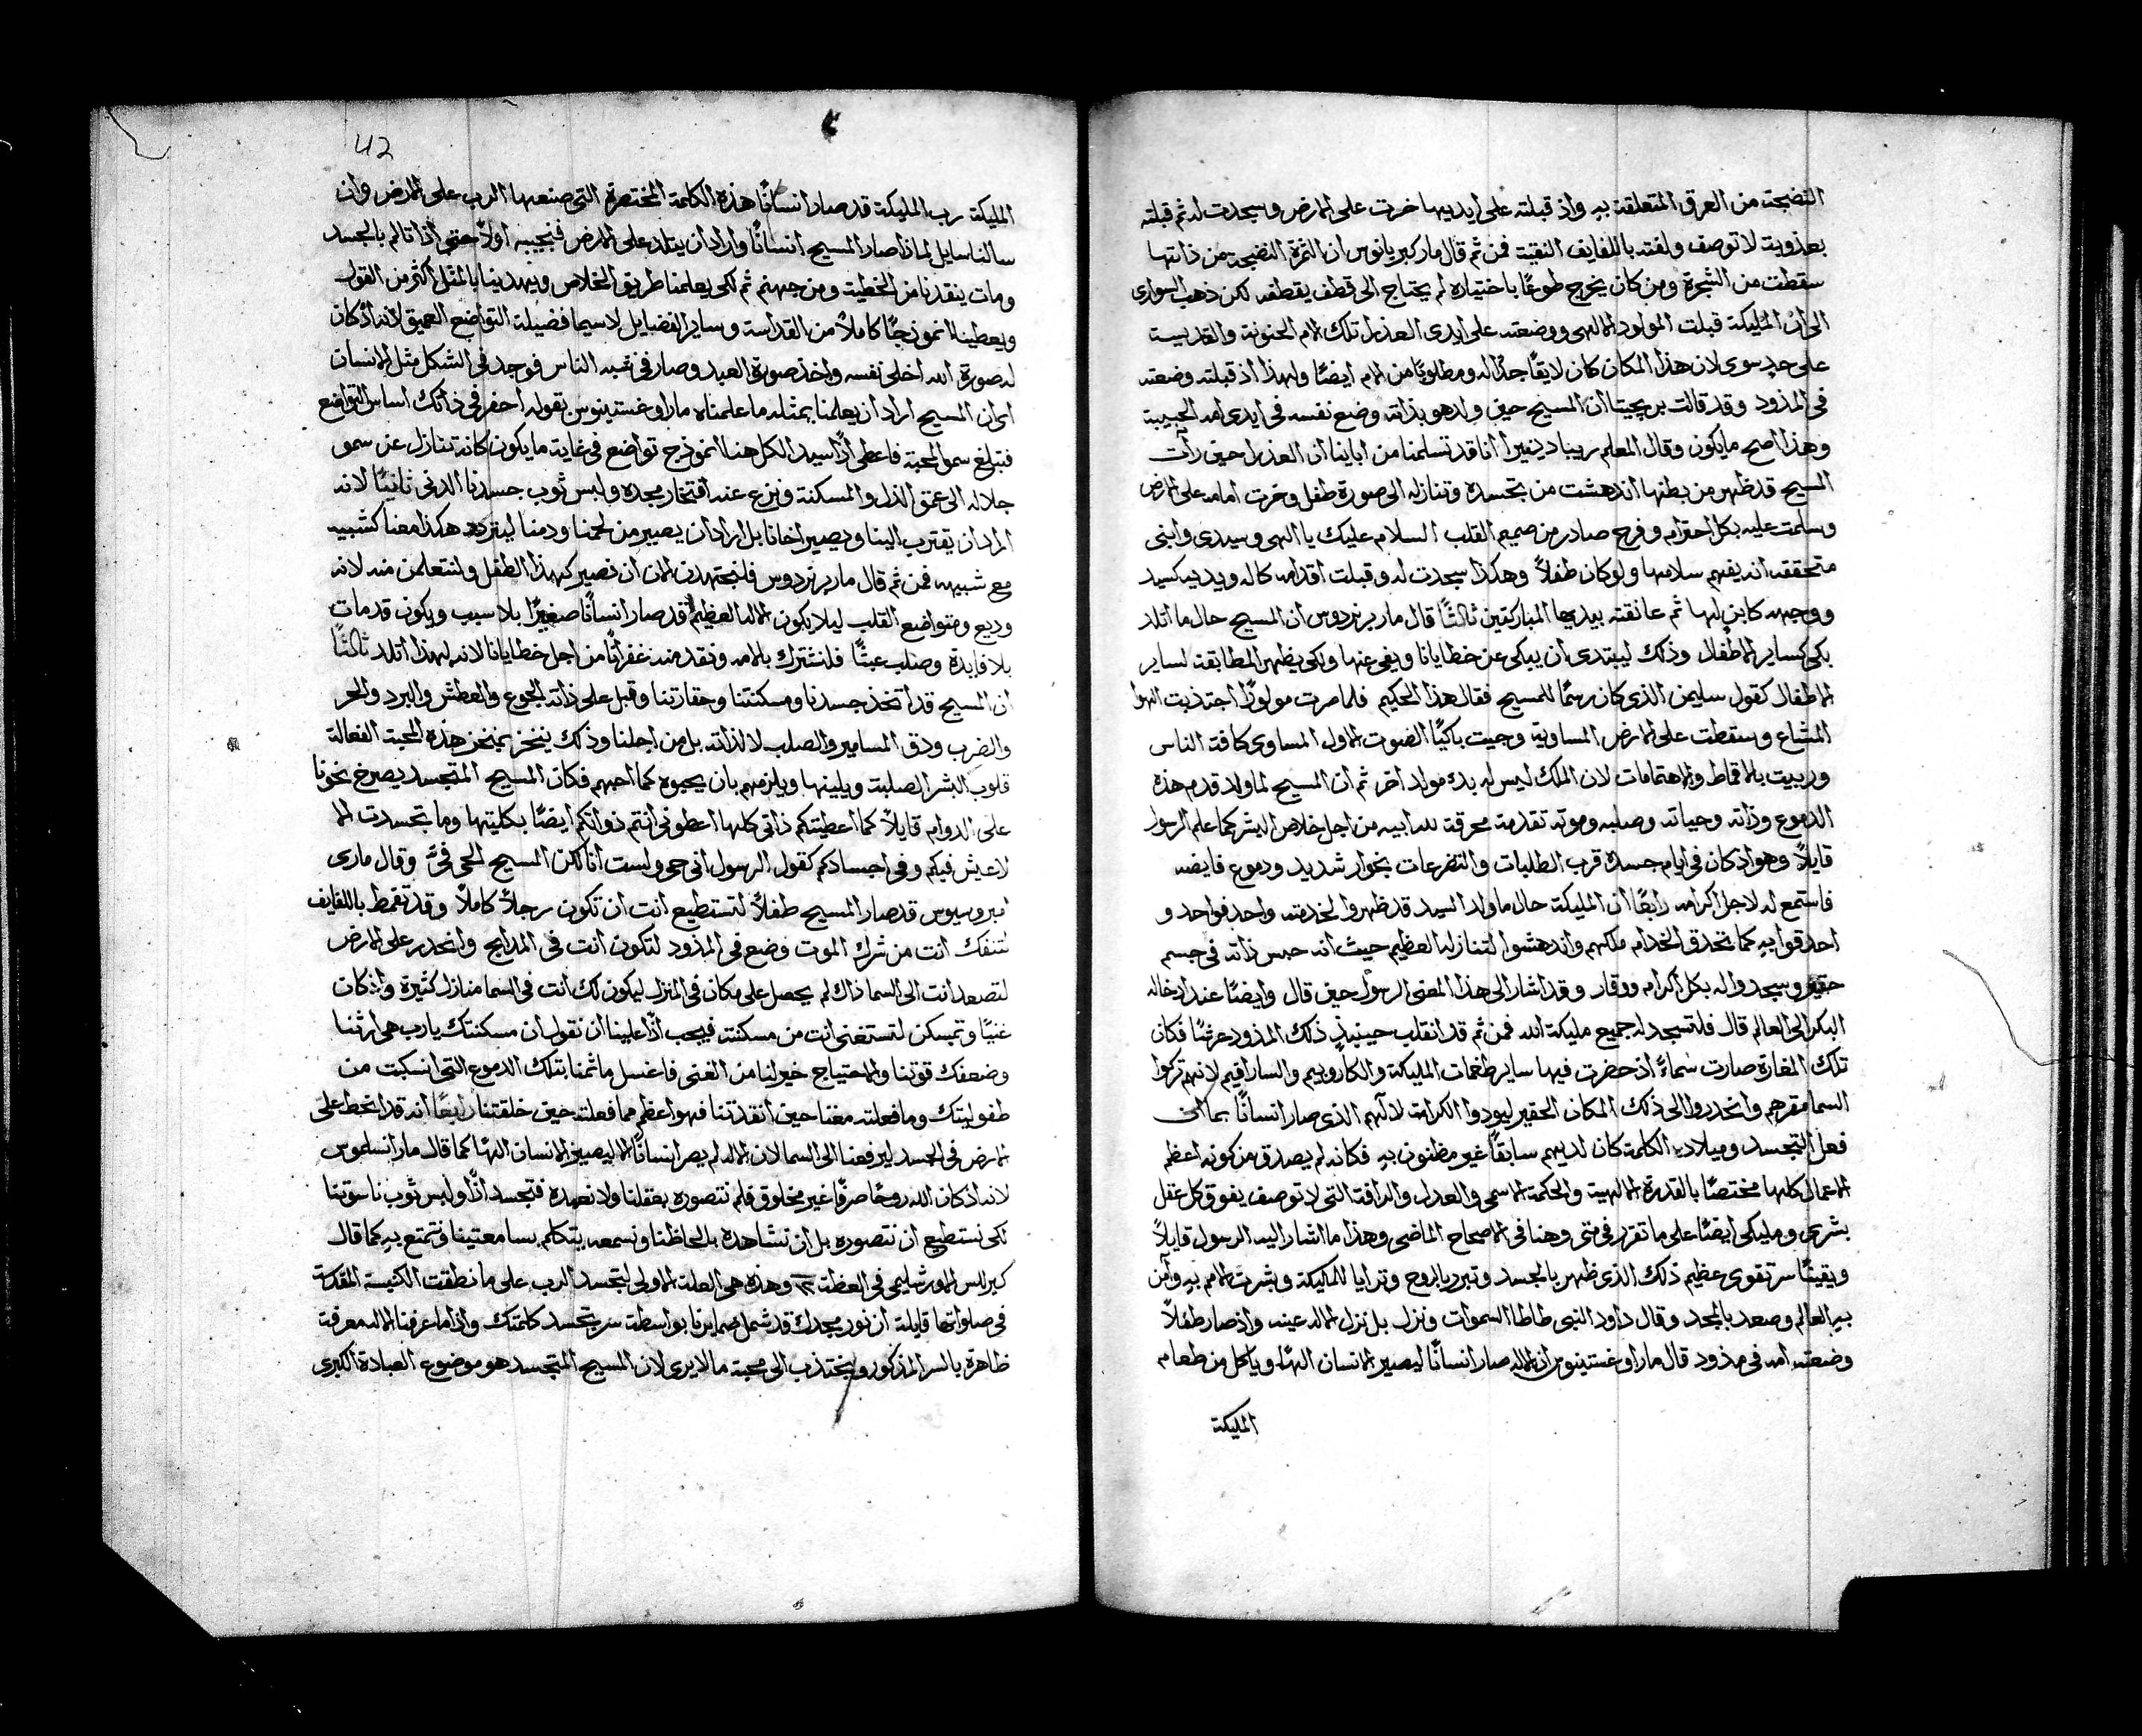 النضيجة من العرق المتعلقة بهِ واذ قبلته على ايديها خرت على الارض وسجدت له ثم قبلته
بعذوبة لا توصف ولفته باللفايف النقية فمن ثم قال مار كبريانوس ان الثمرة النضيجة من ذاتها
سقطت من الشجرة ومن كان يخرج طوعًا باختياره لم يحتاج الى قطف يقطفه لكن ذهب السوارى
الى ان المليكة قبلت المولود الالهى ووضعته على ايدى العذرا تلك الام الحنونة والقديسة
على حدٍ سوى لان هذا المكان كان لايقًا جدًا له ومطلوبًا من الام ايضًا ولهذا اذ قبلته وضعته
فى المذود وقد قالت بريجيتا ان المسيح حين ولد هو بذاته وضع نفسه فى ايدى امه الحبيبة
وهذا اصح ما يكون وقال المعلم ريبا دينيرا اننا قد تسلمنا من اباينا ان العذرا حين رأت
المسيح قد ظهر من بطنها اندهشت من تجسده وتنازله الى صورة طفل وخرت امامه على الارض
وسلمت عليه بكل احترام وفرح صادر من صميم القلب السلام عليك يا الهى وسيدى وابنى
متحققه انه يفهم سلامها ولو كان طفلاً وهكذا سجدت له وقبلت اقدامه كاله ويديه كسيد
ووجهه كابن لها ثم عانقته بيديها المباركتين ثالثًا قال مار برنردوس ان المسيح حال ما اتلد
بكى كساير الاطفال وذلك ليبتدى ان يبكى عن خطايانا ويفى عنها ولكى يظهر المطابقة لساير
الاطفال كقول سليمن الذى كان رسمًا للمسيح فقال هذا الحكيم فلما صرت مولودًا اجتذبت الهوا
المشاع وسقطت على الارض المساوية وجيت باكيًا الصوت الاول المساوى كافة الناس
وربيت بالاقماط والاهتمامات لان الملك ليس له بدء مولد اخر ثم ان المسيح لما ولد قدم هذه
الدموع وذاته وحياته وصلبه وموته تقدمة محرقة لله ابيه من اجل خلاص البشر كما علم الرسول
قايلاً وهو اذ كان فى ايام جسده قرب الطلبات والتضرعات بخوار شديد ودموع فايضه
فاستمع له لاجل اكرامه رابعًا ان المليكة حال ما ولد السيد قد ظهروا لخدمته واحد فواحد و
احدقوا بهِ كما تحدق الخدام ملكهم واندهشوا لتنازله العظيم حيث انه حبس ذاته فى جسم
حقير وسجدوا له بكل اكرام ووقار وقد اشار الى هذا المعنى الرسول حين قال وايضًا عند ادخاله
البكر الى العالم قال فلتسجد له جميع مليكة الله فمن ثم قد انقلب حينيذٍ ذلك المذود عرشًا فكان
تلك المغارة صارت سماءً اذ حضرت فيها ساير طغمات المليكة والكاروبيم والسارافيم لانهم تركوا
السما مقرهم وانحدروا الى ذلك المكان الحقير ليودوا الكرامة لالههم الذى صار انسانًا بما ان
فعل التجسد وميلاد الكلمة كان لديهم سابقًا غير مظنون بهِ فكانه لم يصدق من كونه اعظم
الاعمال كلها مختصًا بالقدرة الالهية والحكمة الاسمى والعدل والرافة التى لا توصف يفوق كل عقل
بشرى ومليكى ايضًا على ما تقرر فى متى وهنا فى الاصحاح الماضى وهذا ما اشار اليه الرسول قايلاً
ويقينًا سر تقوى عظيم ذلك الذى ظهر بالجسد وتبرر بالروح وتراٰيا للمليكة وبشرت الامم بهِ وآمن
بهِ العالم وصعد بالمجد وقال داود النبى طاطا السموات ونزل بل نزل الاله عينه واذ صار طفلاً
وضعته امه فى مذود قال مار اوغستينوس ان الاله صار انسانًا ليصير الانسان الهًا وياكل من طعام
المليكة
42
المليكة رب المليكة قد صار انسانًا هذه الكلمة المختصرة التى صنعها الرب على الارض وان
سالنا سايل لماذا صار المسيح انسانًا واراد ان يتلد على الارض فنجيبه اولاً حتى اذا تالم بالجسد
ومات ينقدنا من الخطية ومن جهنم ثم لكى يعلمنا طريق الخلاص ويهدينا بالمثل اكثر من القول
ويعطينا انموذجًا كاملاً من القداسة وساير الفضايل لاسيما فضيلة التواضع العميق لانه اذ كان
له صورة الله اخلى نفسه واخذ صورة العبد وصار فى شبه الناس فوجد فى الشكل مثل الانسان
اى ان المسيح اراد ان يعلمنا بمثله ما علمناه مار اوغستينوس بقوله احفر فى ذاتك اساس التواضع
فتبلغ سمو المحبة فاعطى اذًا سيد الكل هنا انموذج تواضع فى غاية ما يكون كانه تنازل عن سمو
جلاله الى عمق الذل والمسكنة ونزع عنه افتخار مجده ولبس ثوب جسدنا الدنى ثانيًا لانه
اراد ان يقترب الينا ويصير اخانا بل اراد ان يصير من لحمنا ودمنا هكذا معنا كشبيه
مع شبيهه فمن ثم قال مار برنردوس فلنجتهدن الان ان نصير كهذا الطفل ولنتعلمن منه لانه
وديع ومتواضع القلب ليلا يكون الاله العظيم قد صار انسانًا صغيرًا بلا سبب ويكون قد مات
بلا فايدة وصلب عبثًا فلنشترك بالامه ونقدمنه غفرانًا من اجل خطايانا لانه لهذا اتلد ثالثًا
ان المسيح قد اتخذ جسدنا ومسكنتنا وحقارتنا وقبل على ذاته الجوع والعطش والبرد والحر
والضرب ودق المسامير والصلب لا لذاته بل من اجلنا وذلك ينخز بمنخز هذه المحبة الفعالة
قلوب البشر الصلبة ويلينها ويلزمهم بان يحبوه كما احبهم فكان المسيح المتجسد يصرخ نحونا
على الدوام قايلاً كما اعطيتكم ذاتى كلها اعطونى انتم ذواتكم ايضًا بكليتها وما تجسدت الا
لاعيش فيكم وفى اجسادكم كقول الرسول انى حى ولست انا لكن المسيح الحى فىَّ وقال مارى
امبروسيوس قد صار المسيح طفلاً لتستطيع انت ان تكون رجلاً كاملاً وقد تقمط باللفايف
لتنفك انت من شرك الموت وضع فى المذود لتكون انت فى المدايح وانحدر على الارض
لتصعد انت الى السما ذاك لم يحصل على مكان فى المنزل ليكون لك انت فى السما منازل كثيرة واذ كان
غنيًا وتمسكن لتستغنى انت من مسكنته فيجب اذًا علينا ان نقول ان مسكنتك يا رب هى ارثنا
وضعفك قوتنا والاحتياج خير لنا من الغنى فاغسل ماثمنا بتلك الدموع التى انسكبت من
طفوليتك وما فعلته معنا حين انقدتنا فهو اعظم مما فعلته حين خلقتنا رابعًا انه قد انحط على
الارض فى الجسد ليرفعنا الى السما لان الاله لم يصر انسانًا الا ليصير الانسان الهًا كما قال مار انسلموس
لانه اذ كان الله روحًا صرفًا غير مخلوق فلم نتصوره بعقلنا ولا نعهده فتجسد اذًا ولبس ثوب ناسوتنا
لكى نستطيع ان نتصوره بل ان نشاهده بالحاظنا ونسمعه يتكلم بسامعتينا ونتمتع بهِ كما قال
كيرللس الاورشليمى فى العظة ١٢ وهذه هى العلة الاولى لتجسد الرب على ما نطقت الكنيسة المقدسة
فى صلواتها قايلة ان نور مجدك قد شمل ضمايرنا بواسطة سر تجسد كلمتك واذ اما عرفنا الاله معرفة
ظاهرة بالسر المذكور نجتذب الى محبة ما لا يرى لان المسيح المتجسد هو موضوع العبادة الكبرى